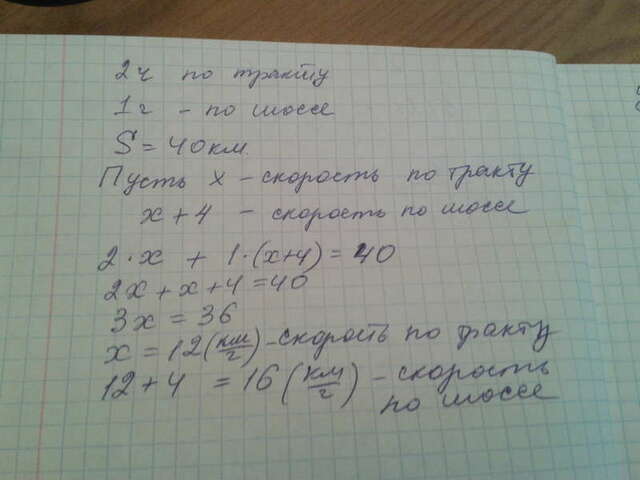 2ч по тракту
1ч - по шоссе
S = 40 км.
Пусть x - скорость по тракту
x + 4 - скорость по шоссе
2 · x + 1 · (x+4) = 40
2x + x + 4 = 40
3x = 36
x = 12 (км/ч) - скорость по тракту
12 + 4 = 16 (км/ч) - скорость
по шоссе